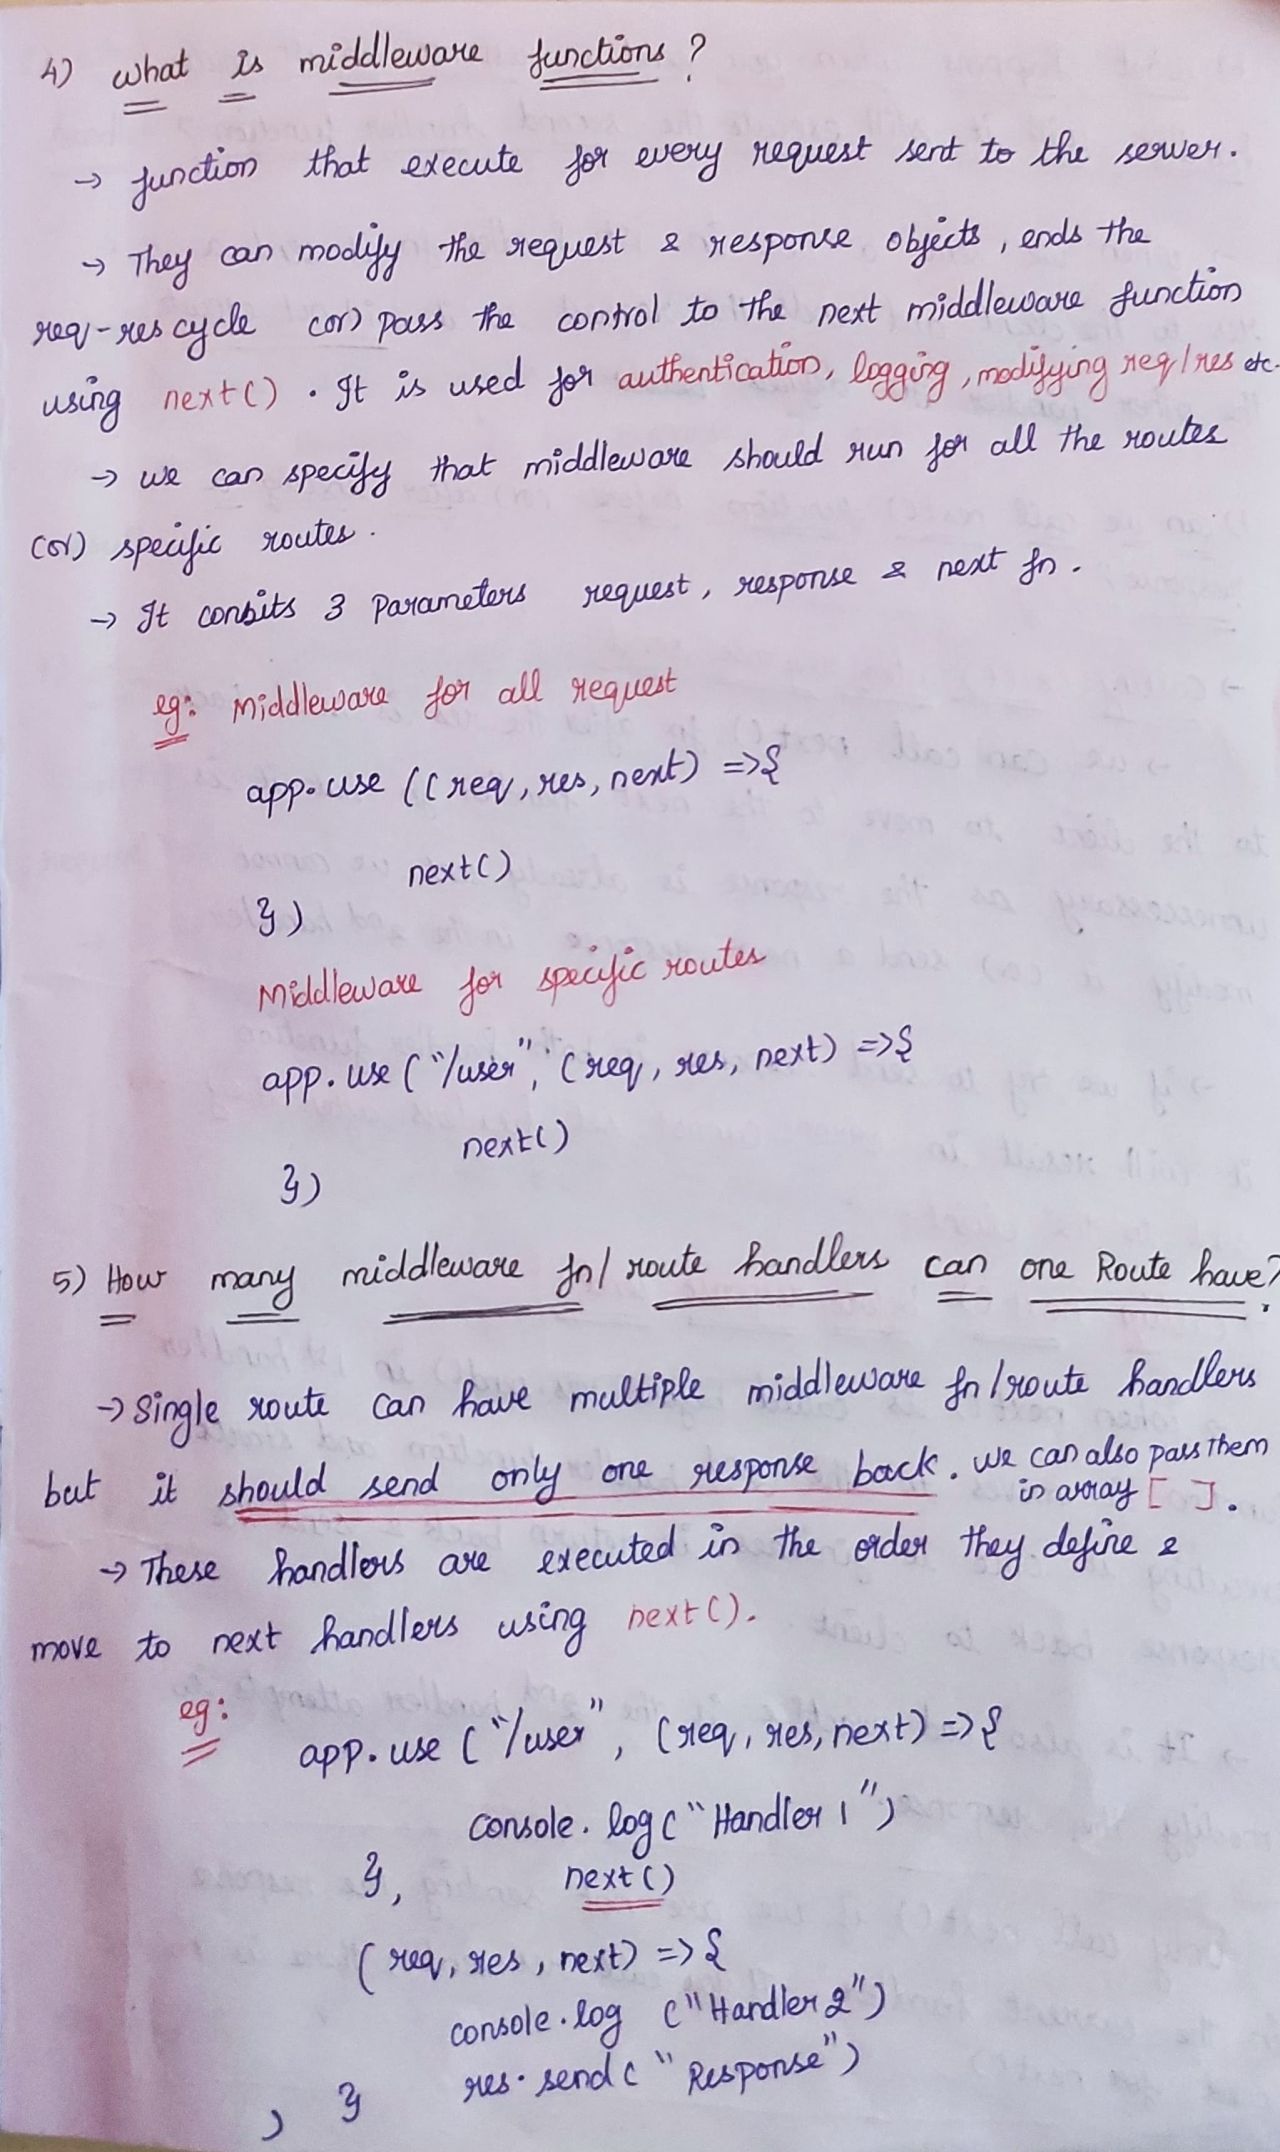 4) what is middleware functions ?
→ function that execute for every request sent to the server.
→ They can modify the request & response objects, ends the
req-res cycle (or) pass the control to the next middleware function
using next() . It is used for authentication, logging, modifying req/res etc.
→ we can specify that middleware should run for all the routes
(or) specific routes.
→ It consits 3 Parameters request, response & next fn.
eg: Middleware for all request
app.use ((req, res, next) =>{
next()
})
Middleware for specific routes
app.use ("/user", (req, res, next) =>{
next()
})
5) How many middleware fn/ route handlers can one Route have?
→ Single route can have multiple middleware fn/route handlers
but it should send only one response back. we can also pass them
in array [ ].
→ These handlers are executed in the order they define &
move to next handlers using next().
eg:
app.use ("/user", (req, res, next) =>{
console.log("Handler 1")
next()
},
(req, res, next) =>{
console.log ("Handler 2")
res.send("Response")
}
)